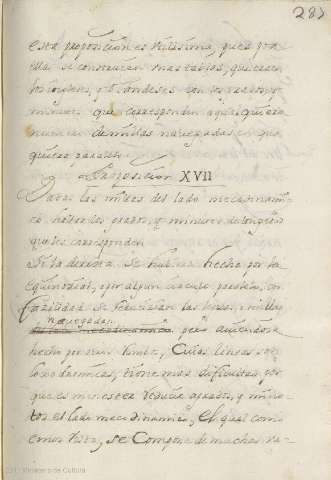 287
esta proposicion es utilissima, pues por
ella se construien unas tablas, que traen
los ingleses, y olandeses con los grados, y
minutos que corresponden a qualquiera
numero de millas navegadas en qual
quiera paralelo.
Proposicion XVII
Dadas las millas del lado mecodinami
co, hallar los grados, y minutos de longitud
que les corresponden
Si la derrota se hubiera hecho por la
equinocial, o por algun circulo paralelo, con
facilidad se las leguas, o millas
navegadas, pero aviendose
hecho por otros Rumbos, Cuias lineas son
loxodromicas, tiene mas dificultad, por
que es menester reducir a grados, y minu
tos el lado mecodinamico, el qual como
emos visto, se Compone de muchos
Ministerio de Cultura